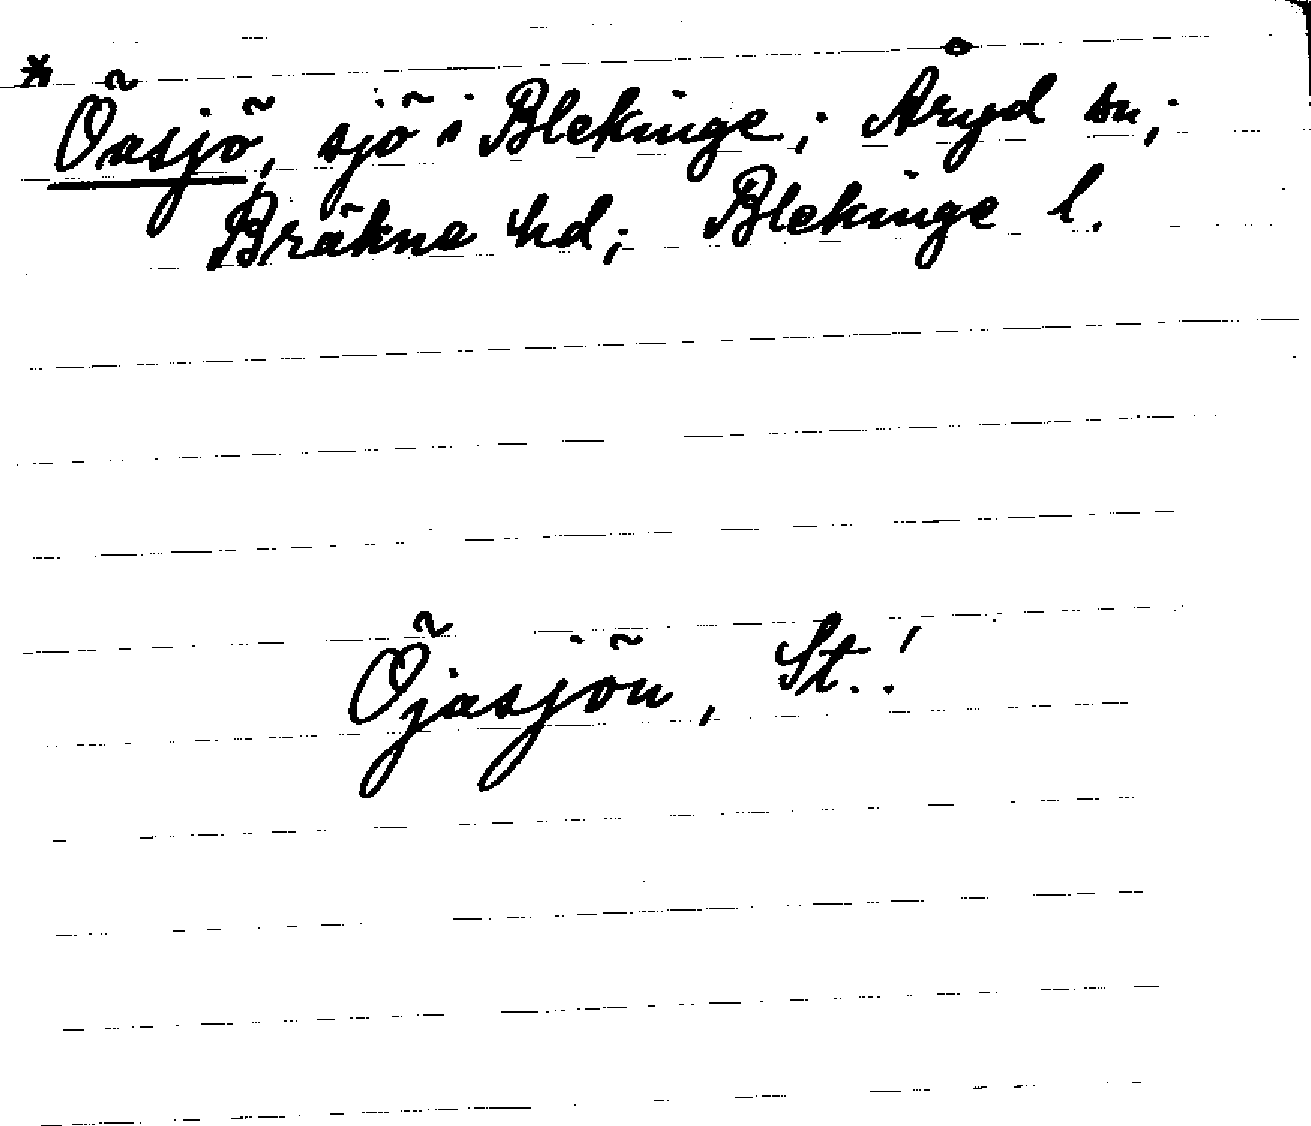 * Öasjö, sjö i Blekinge; Åryd sn;
Bräkne hd; Blekinge l.
Öjasjön, St.!